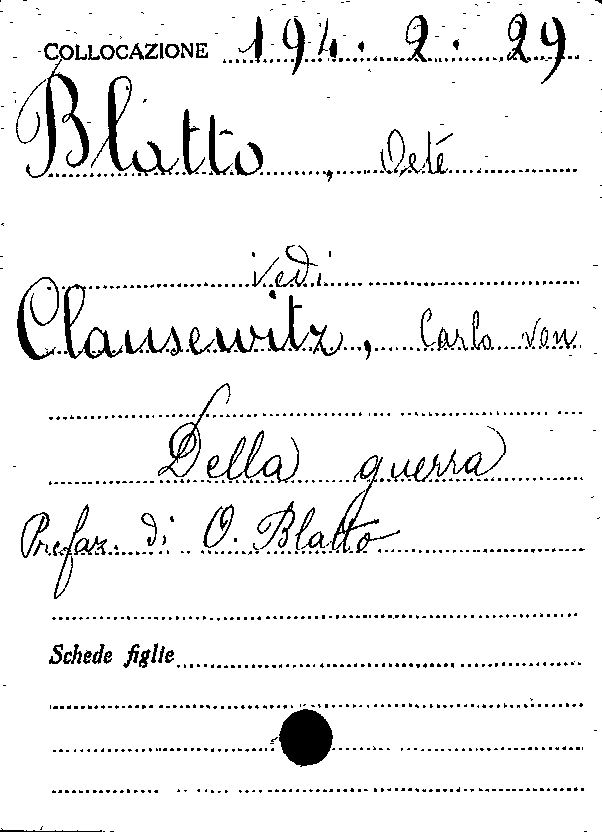 COLLOCAZIONE 194. 2. 29
Blatto, Oete
vedi
Clausewitz, Carlo von
Della guerra
Prefaz. di O. Blatto
Schede figlie